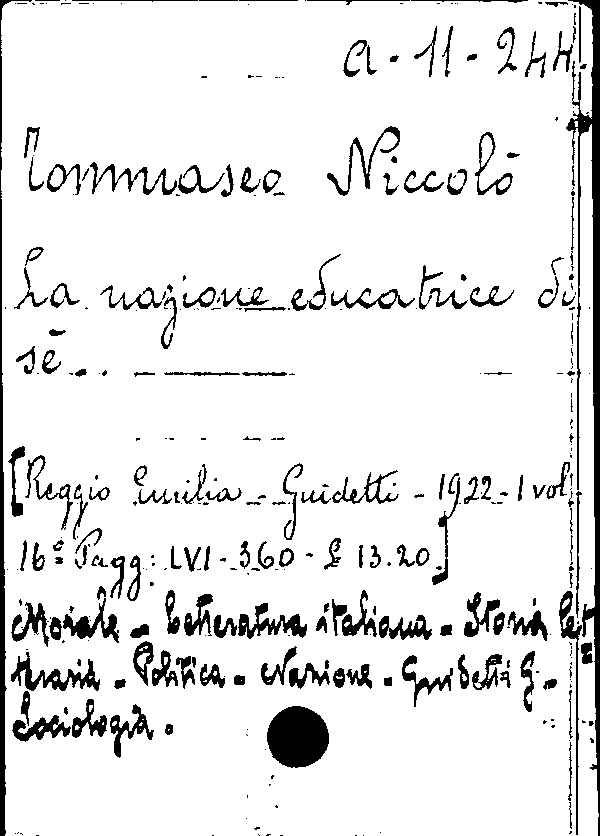 a - 11 - 244.
Tommaseo Niccolò
La nazione educatrice di
sè..
[Reggio Emilia - Guidetti - 1922 - 1 vol.
16º Pagg: LVI - 360 - £ 13.20.]
Morale - Letteratura italiana - Storia let=
teraria - Politica - Nazione - Guidetti G. -
Sociologia.